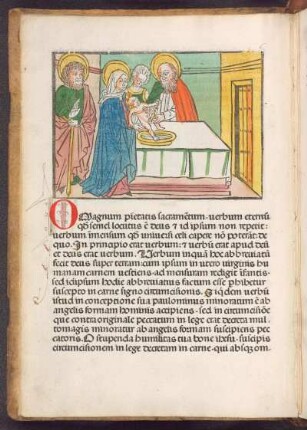 O Magnum pietatis sacramentum. verbum eternū
qd semel locutus ē deus ⁊ id ipsum non repetit:
verbum imensum qd universi celi capere nō poterāt de
quo. In principio erat verbum: ⁊ verbū erat apud deū
et deus erat verbum. Verbum inquā hoc abbreviatū
fecit deus super terram: cum ipsum in utero virginis hu
manam carnem vestiens ad mensuram redigit ifantis:
sed icipsum hodie abbreviatius factum esse phibetur.
suscipto in carne signo circumcisionis. Et idem verbū
in conceptione sua paulominus minoratum ē ab
angelis formam hominis accipiens. sed in circumcisione
que contra originale peccatum in lege erat decreta mul
tomagis minoratur ab angelis formam suscipiens pec
catoris. O stupenda humilitas tua bone ihesu. suscipis
circumcisionem in lege decretam in carne. qui absqȝ om